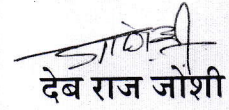 देब राज जोशी